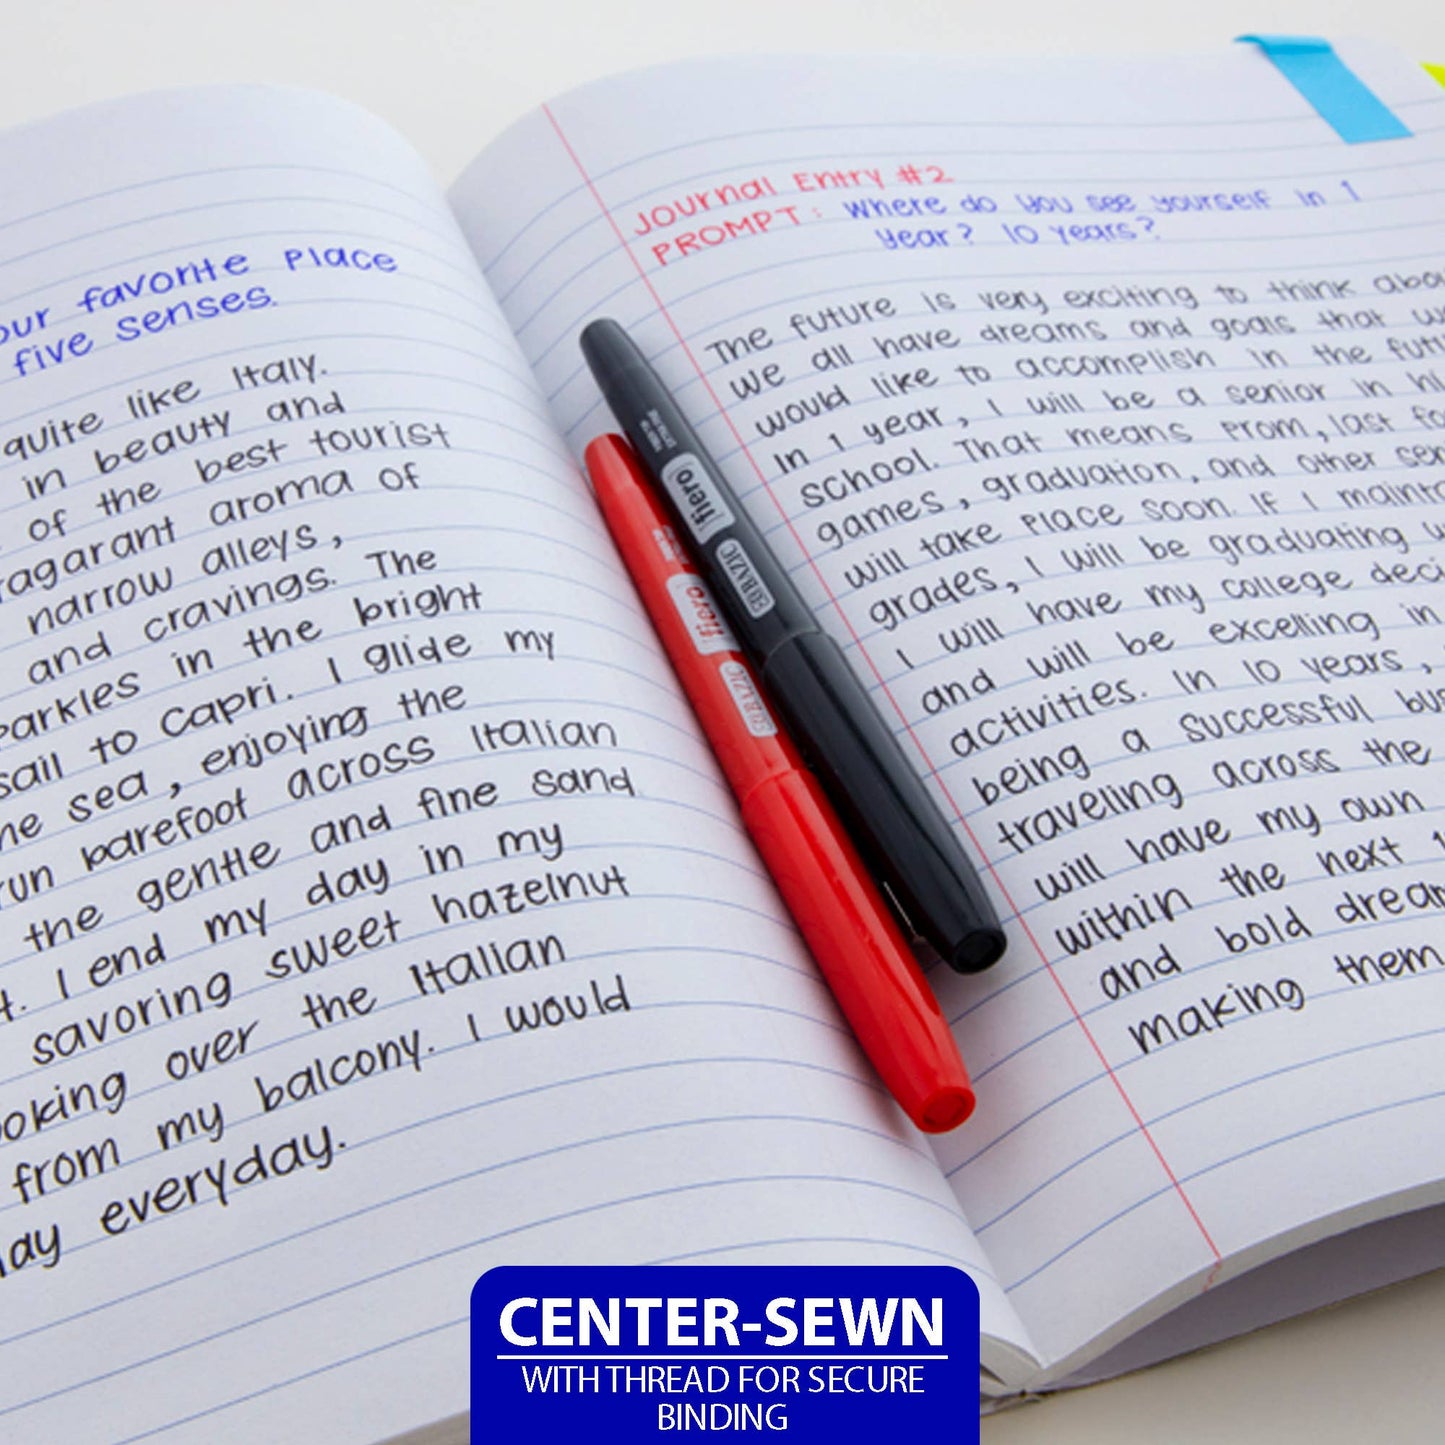 favorite Place
five senses.
quite like Italy.
in beauty and
of the best tourist
aroma of
narrow alleys,
and cravings. The
in the bright
sail to Capri. I glide my
sea, enjoying the
run barefoot across Italian
the gentle and fine sand
I end my day in my
savoring sweet hazelnut
over the Italian
from my balcony. I would
everyday.
Journal Entry #2
PROMPT: Where do you see yourself in 1
year? 10 years?
The future is very exciting to think
we all have dreams and goals that
would like to accomplish in the
In 1 year, I will be a senior in
school. That means Prom, last
games, graduation, and other
will take place soon. If I
grades, I will be graduating
I will have my college
and will be excelling in
activities. In 10 years,
being a successful
traveling across the
will have my own
within the next
and bold
making them
fiero
BAZIC
fiero
BAZIC
CENTER-SEWN
WITH THREAD FOR SECURE
BINDING